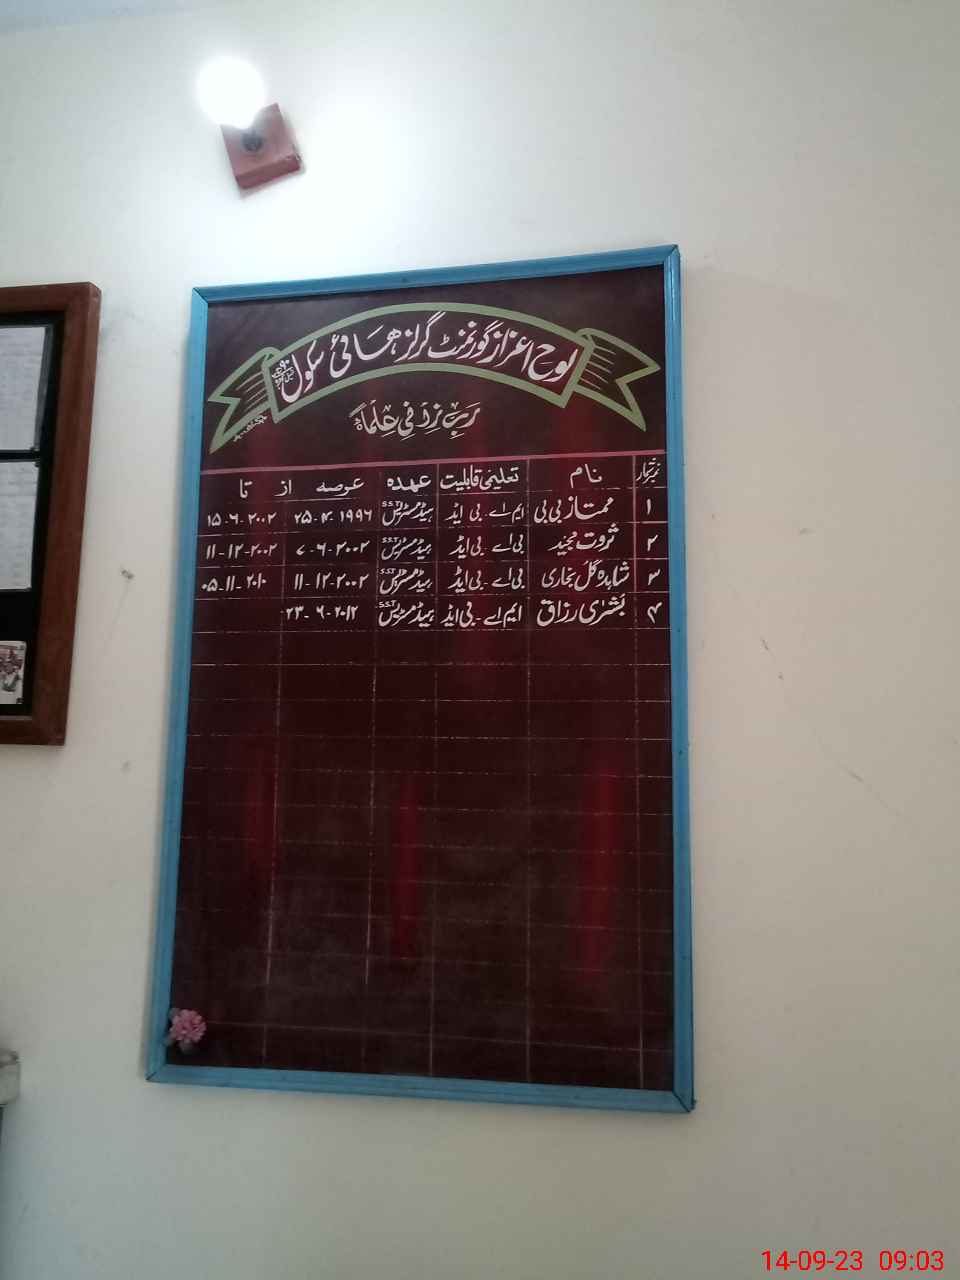 لوح اعزاز گورنمنٹ گرلز ھائی سکول
رَبِّ زِدْ فِی عِلْمَاً
نمبر شمار نام تعلیمی قابلیت عہدہ عرصہ از تا
۱ ممتاز بی بی ایم اے - بی ایڈ ہیڈمسٹریس S.S.T ۲۵-۴-۱۹۹۶ ۱۵-۶-۲۰۰۲
۲ ثروت مجید بی اے - بی ایڈ ہیڈمسٹریس S.S.T ۷-۶-۲۰۰۲ ۱۱-۱۲-۲۰۰۲
۳ شاہدہ گل بخاری بی اے - بی ایڈ ہیڈمسٹریس S.S.T ۱۱-۱۲-۲۰۰۲ ۰۵-۱۱-۲۰۱۰
۴ بشریٰ رزاق ایم اے - بی ایڈ ہیڈمسٹریس S.S.T ۲۳-۶-۲۰۱۲
14-09-23 09:03